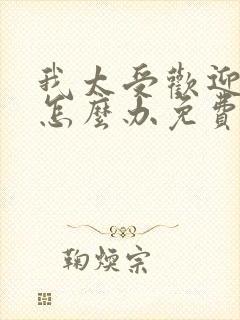 我太受歡迎
怎麼办免費
鞠煐宗